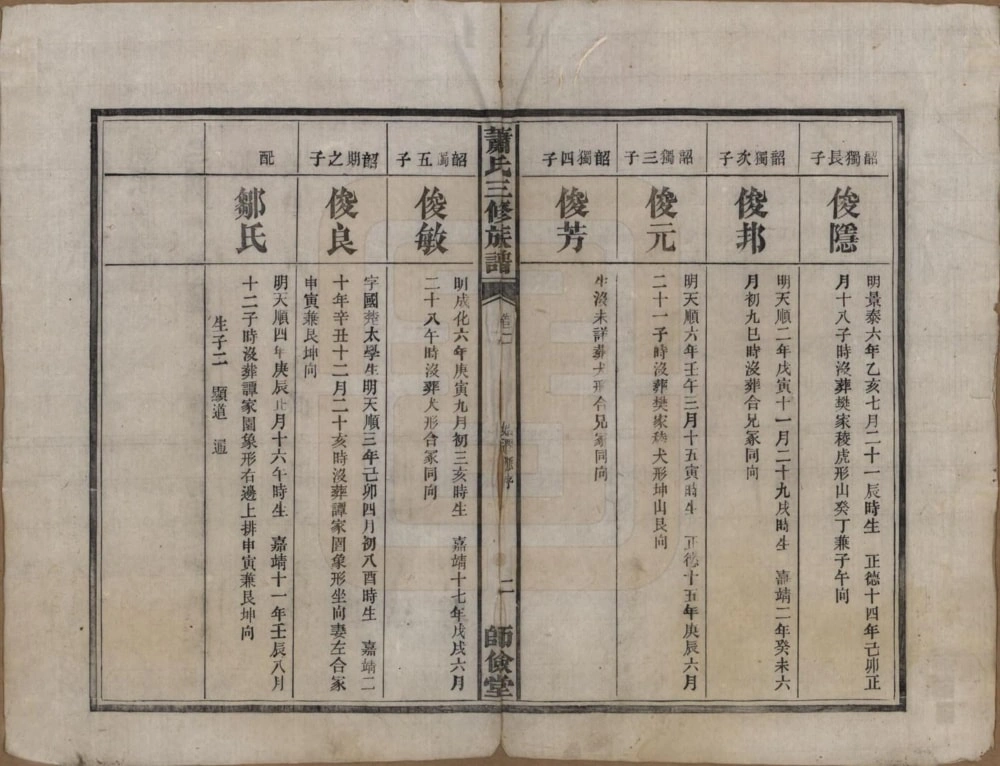 韶獨長子
俊隱
明景泰六年乙亥七月二十一辰時生　正德十四年己卯正
月十八子時沒葬樊家稜虎形山癸丁兼子午向
韶獨次子
俊邦
明天順二年戊寅十一月二十九戌時生　嘉靖二年癸未六
月初九巳時沒葬合兄冢同向
韶獨三子
俊元
明天順六年壬午三月十五寅時生　正德十五年庚辰六月
二十一子時沒葬樊家稜犬形坤山艮向
韶獨四子
俊芳
生沒未詳葬犬形合兄冢同向
蕭氏三修族譜
卷二
二
師儉堂
韶獨五子
俊敏
明成化六年庚寅九月初三亥時生　嘉靖十七年戊戌六月
二十八午時沒葬犬形合冢同向
韶期之子
俊良
字國葵太學生明天順三年己卯四月初八酉時生　嘉靖二
十年辛丑十二月二十亥時沒葬譚家園象形坐向妻左合冢
申寅兼艮坤向
配
鄒氏
明天順四年庚辰正月十六午時生　嘉靖十一年壬辰八月
十二子時沒葬譚家園象形右邊上排申寅兼艮坤向
生子二　顯道　迵